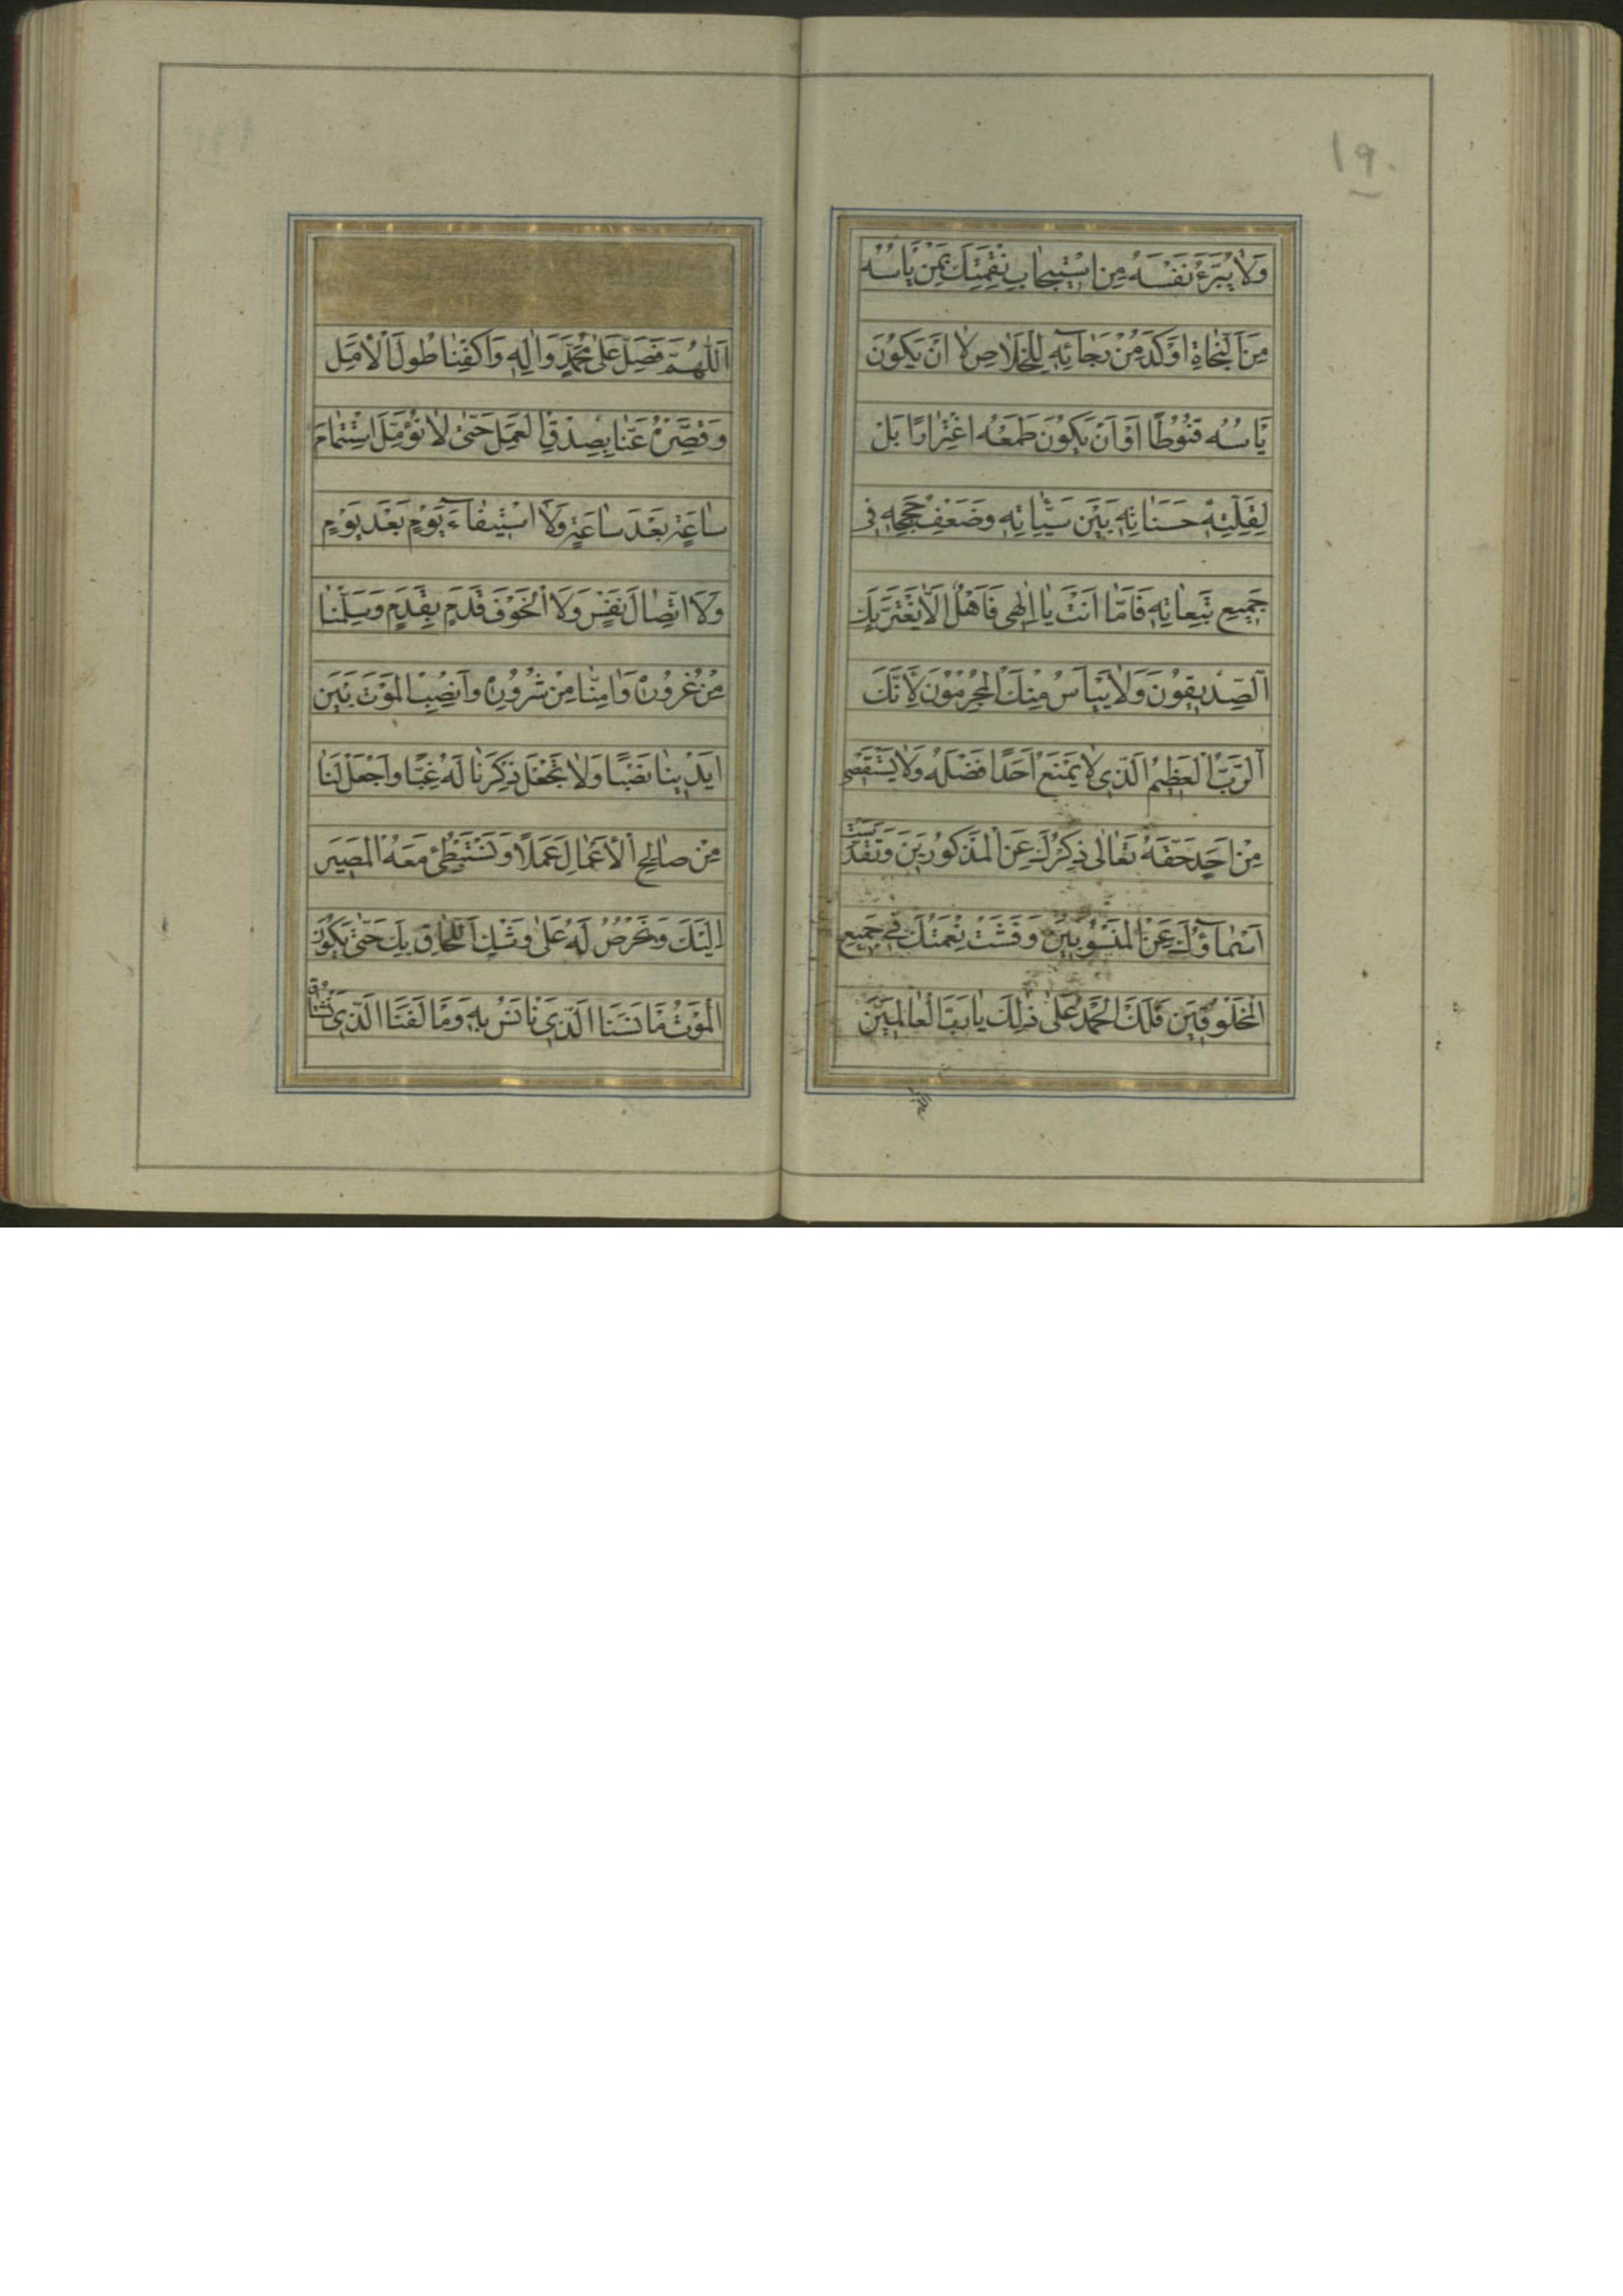 ١٩٠
وَلَا يُبَرِّءُ نَفْسَهُ مِنِ اسْتِيجَابِ نِقْمَتِكَ يَمَنْ يَأْسُهُ
مِنَ النَّجَاةِ اَوْكَدُ مِنْ رَجَائِهِ لِلْخَلَاصِ لَا اَنْ يَكُونَ
يَأْسُهُ قُنُوطًا اَوْ اَنْ يَكُونَ طَمَعُهُ اغْتِرَارًا بَلْ
لِقِلَّتِهِ حَسَنَاتِهِ بَيْنَ سَيِّئَاتِهِ وَضَعْفِ حُجَجِهِ فِي
جَمِيعِ تَبِعَاتِهِ فَاَمَّا اَنْتَ يَا اِلٰهِي فَاَهْلٌ اَلَّا يَغْتَرَّ بِكَ
الصِّدِّيقُونَ وَلَا يَيْأَسُ مِنْكَ الْمُجْرِمُونَ لِاَنَّكَ
الرَّبُّ الْعَظِيمُ الَّذِي لَا يَمْنَعُ اَحَدًا فَضْلَهُ وَلَا يَسْتَقْصِي
مِنْ اَحَدٍ حَقَّهُ تَعَالٰى ذِكْرُكَ عَنِ الْمَذْكُورِينَ وَتَقَدَّسَتْ
اَسْمَآؤُكَ عَنِ الْمَنْسُوبِينَ وَفَشَتْ نِعْمَتُكَ فِي جَمِيعِ
الْمَخْلُوقِينَ فَلَكَ الْحَمْدُ عَلٰى ذٰلِكَ يَا رَبَّ الْعَالَمِينَ
اَللّٰهُمَّ فَصَلِّ عَلٰى مُحَمَّدٍ وَاٰلِهِ وَاكْفِنَا طُولَ الْاَمَلِ
وَقَصِّرْهُ عَنَّا بِصِدْقِ الْعَمَلِ حَتّٰى لَا نُؤَمِّلَ اسْتِتْمَامَ
سَاعَةٍ بَعْدَ سَاعَةٍ وَلَا اسْتِيفَاءَ يَوْمٍ بَعْدَ يَوْمٍ
وَلَا اتِّصَالَ نَفَسٍ وَلَا الْخَوْفَ قَدَمٍ بِقَدَمٍ وَسَلِّمْنَا
مِنْ غُرُورِهِ وَاٰمِنَّا مِنْ شُرُورِهِ وَانْصِبِ الْمَوْتَ بَيْنَ
اَيْدِينَا نَصْبًا وَلَا تَجْعَلْ ذِكْرَنَا لَهُ غِبًّا وَاجْعَلْ لَنَا
مِنْ صَالِحِ الْاَعْمَالِ عَمَلًا وَنَسْتَبْطِئُ مَعَهُ الْمَصِيرَ
اِلَيْكَ وَنَحْرِصُ لَهُ عَلٰى وَشْكِ اللَّحَاقِ بِكَ حَتّٰى يَكُونَ
الْمَوْتُ مَأْنَسَنَا الَّذِي نَأْنَسُ بِهِ وَمَأْلَفَنَا الَّذِي نَشْتَاقُ